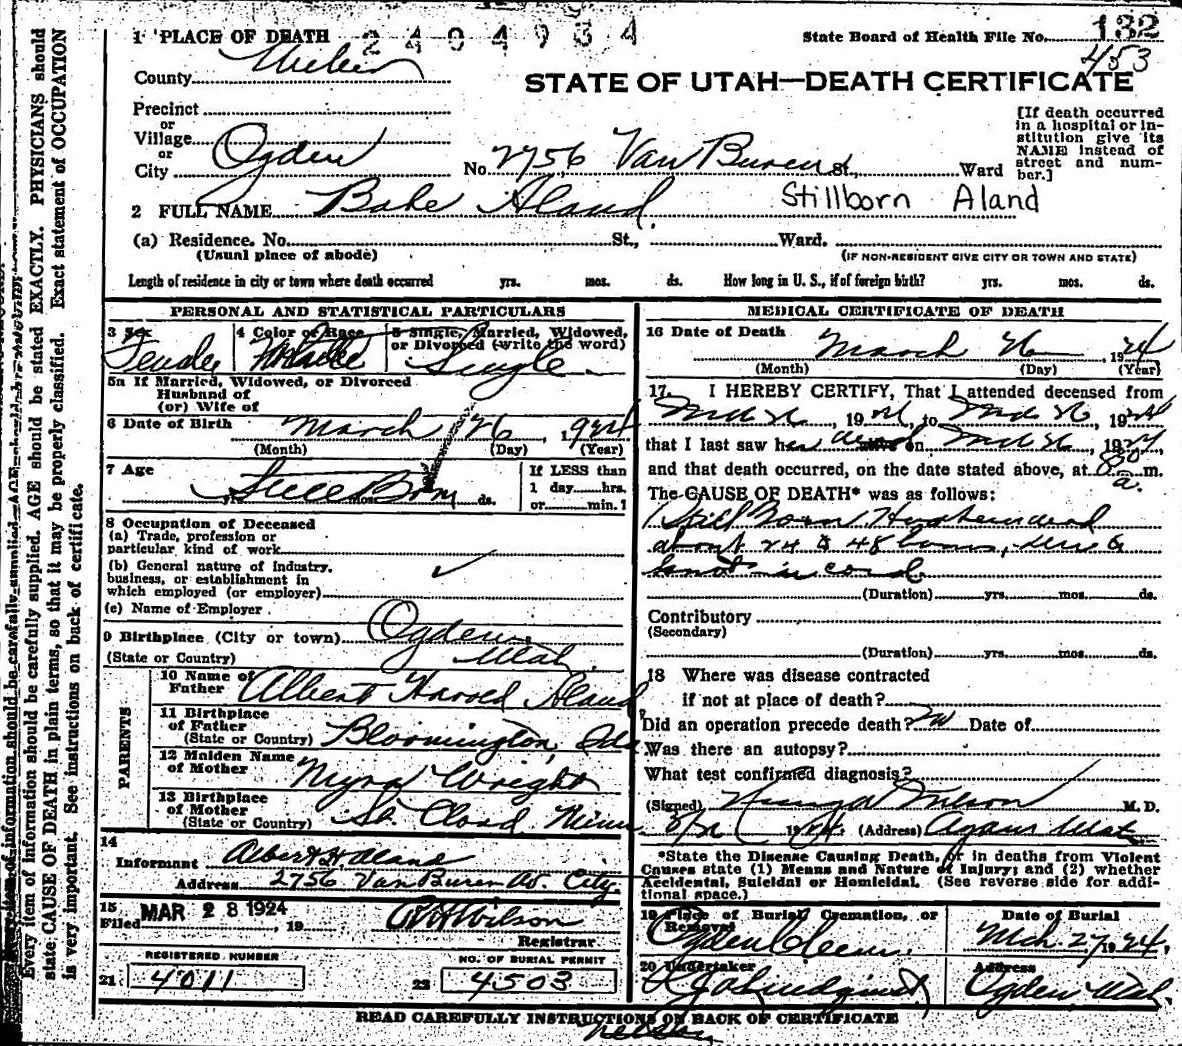 1 PLACE OF DEATH 2404934
State Board of Health File No. 132
453
County Weber
STATE OF UTAH—DEATH CERTIFICATE
Precinct
or
Village
or
City Ogden No. 2756 Van Buren St., Ward
[If death occurred in a hospital or in-
stitution give its
NAME instead of
street and num-
ber.]
2 FULL NAME Babe Aland. Stillborn Aland
(a) Residence. No. St., Ward.
(Usual place of abode) (IF NON-RESIDENT GIVE CITY OR TOWN AND STATE)
Length of residence in city or town where death occurred yrs. mos. ds. How long in U. S., if of foreign birth? yrs. mos. ds.
PERSONAL AND STATISTICAL PARTICULARS
3 Sex 4 Color or Race 5 Single, Married, Widowed,
or Divorced (write the word)
Female White Single
5a If Married, Widowed, or Divorced
Husband of
(or) Wife of
6 Date of Birth March 26, 1924
(Month) (Day) (Year)
7 Age Still Born yrs. mos. ds.
If LESS than
1 day hrs.
or min. ?
8 Occupation of Deceased
(a) Trade, profession or
particular kind of work
(b) General nature of industry,
business, or establishment in
which employed (or employer)
(c) Name of Employer
9 Birthplace (City or town) Ogden,
(State or Country) Utah.
PARENTS
10 Name of
Father Albert Harold Aland
11 Birthplace
of Father
(State or Country) Bloomington, Ida
12 Maiden Name
of Mother Myra Wright
13 Birthplace
of Mother
(State or Country) St. Cloud Minn.
14
Informant Albert H. Aland
Address 2756 Van Buren Av. City.
15
Filed MAR 28 1924, 19 Wilson
Registrar
REGISTERED NUMBER NO. OF BURIAL PERMIT
21 4011 22 4503
MEDICAL CERTIFICATE OF DEATH
16 Date of Death March 26, 1924
(Month) (Day) (Year)
17. I HEREBY CERTIFY, That I attended deceased from
Mch 26, 1924, to Mch 26, 1924
that I last saw her on Mch 26, 1924,
and that death occurred, on the date stated above, at 8 a.m.
The CAUSE OF DEATH* was as follows:
Still Born. dead
about 24 to 48 hours, due to
knot in cord.
(Duration) yrs. mos. ds.
Contributory
(Secondary)
(Duration) yrs. mos. ds.
18 Where was disease contracted
if not at place of death?
Did an operation precede death? no Date of
Was there an autopsy?
What test confirmed diagnosis?
(Signed) M. D.
1924. (Address) Ogden Utah
*State the Disease Causing Death, or in deaths from Violent
Causes state (1) Means and Nature of Injury; and (2) whether
Accidental, Suicidal or Homicidal. (See reverse side for addi-
tional space.)
19 Place of Burial, Cremation, or
Removal Date of Burial
Ogden Cem. Mch. 27, 1924.
20 Undertaker Address
Ogden Utah.
READ CAREFULLY INSTRUCTIONS ON BACK OF CERTIFICATE
Every item of information should be carefully supplied. AGE should be stated EXACTLY. PHYSICIANS should
state CAUSE OF DEATH in plain terms, so that it may be properly classified. Exact statement of OCCUPATION
is very important. See instructions on back of certificate.